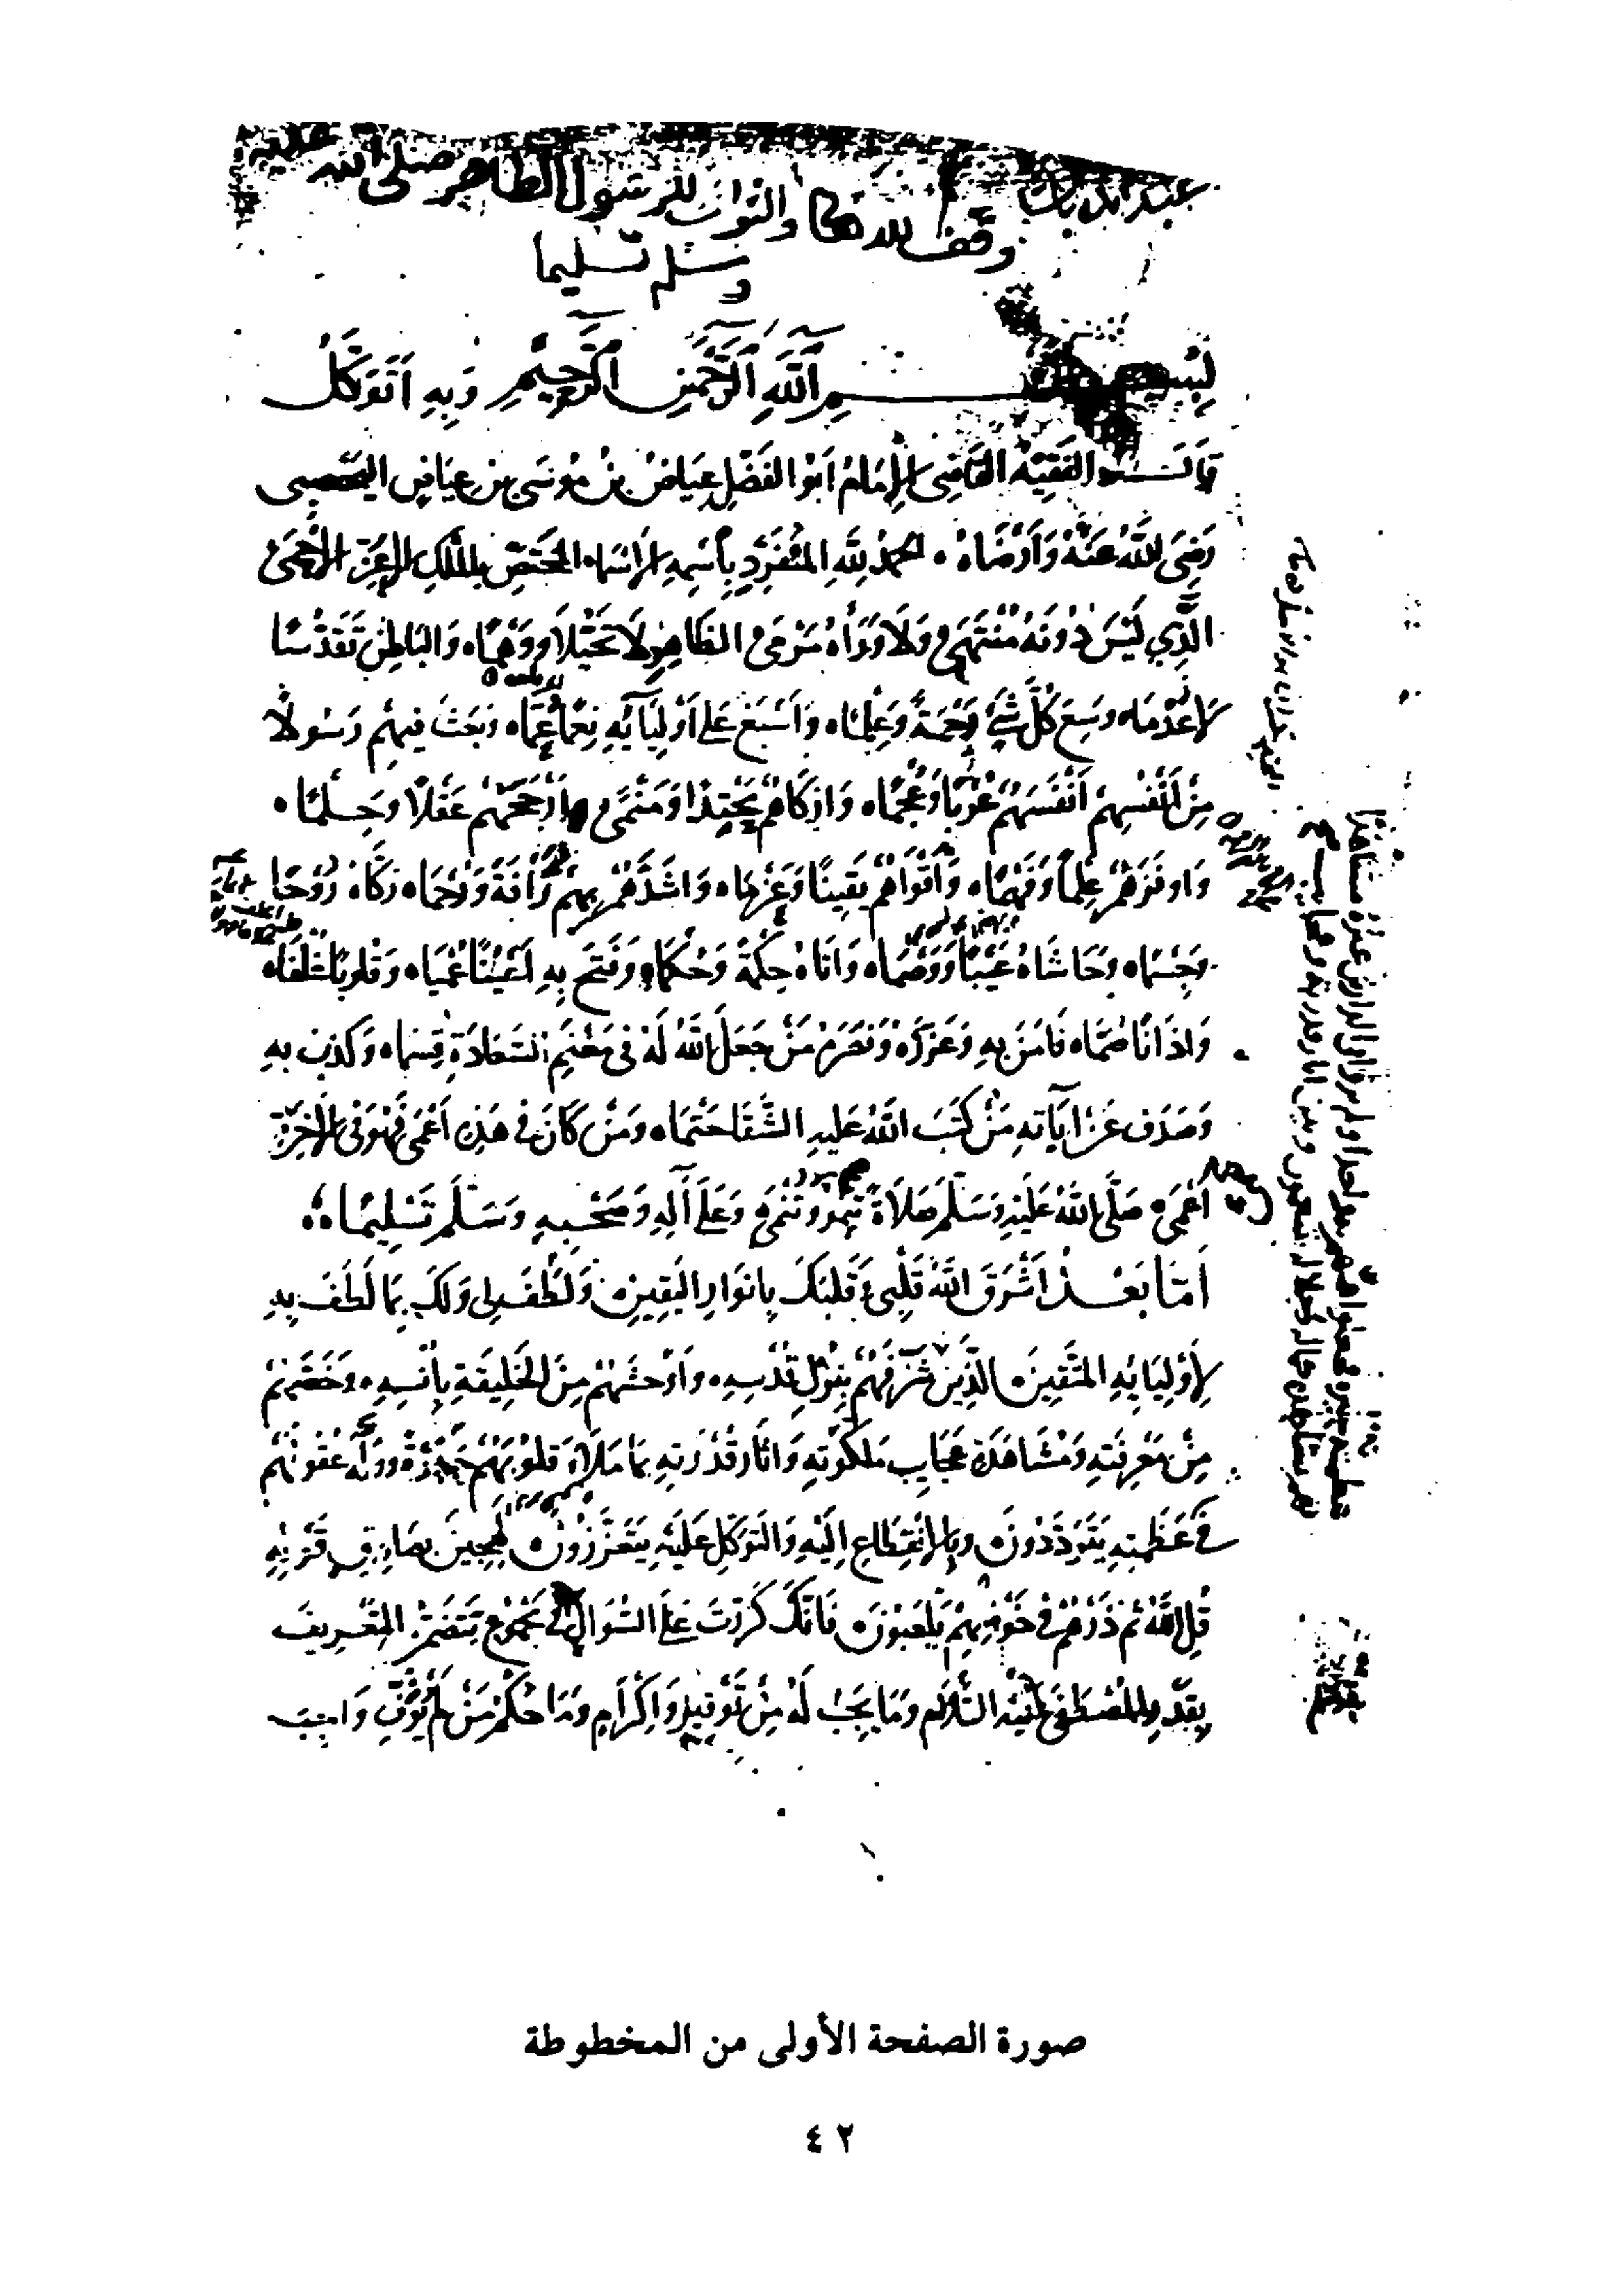 وقف لله تعالى والثواب للرسول الطاهر صلى الله عليه
وسلم تسليما
بِسْمِ اللَّهِ الرَّحْمَنِ الرَّحِيمِ وَبِهِ أَتَوَكَّلُ
قَالَ الفَقِيهُ القَاضِي الإِمَامُ أَبُو الفَضْلِ عِيَاضُ بْنُ مُوسَى بْنِ عِيَاضٍ اليَحْصُبِي
رَضِيَ اللَّهُ عَنْهُ وَأَرْضَاهُ. الحَمْدُ لِلَّهِ المُنْفَرِدِ بِاسْمِهِ الأَسْمَاء المُخْتَصِّ بِالمُلْكِ الأَعَزِّ الأَحْمَى
الَّذِي لَيْسَ دُونَهُ مُنْتَهَى وَلَا وَرَاءَهُ مَرْمَى الظَّاهِرِ لَا تَخَيُّلًا وَوَهْمًا، وَالبَاطِنِ تَقَدُّسًا
لَا عُدْمًا، وَسِعَ كُلَّ شَيْءٍ رَحْمَةً وَعِلْمًا، وَأَسْبَغَ عَلَى أَوْلِيَائِهِ نِعَمًا عُمًّا، وَبَعَثَ فِيهِمْ رَسُولًا
مِنْ أَنْفُسِهِمْ أَنْفَسَهُمْ عُرْبًا وَعُجْمًا، وَأَزْكَاهُمْ مَحْتِدًا وَمَنْمًى وَأَرْجَحَهُمْ عَقْلًا وَحِلْمًا،
وَأَوْفَرَهُمْ عِلْمًا وَفَهْمًا، وَأَقْوَاهُمْ يَقِينًا وَعَزْمًا، وَأَشَدَّهُمْ بِهِمْ رَأْفَةً وَرُحْمًا، زَكَّاهُ رُوحًا
وَجِسْمًا، وَحَاشَاهُ عَيْبًا وَوَصْمًا، وَآتَاهُ حِكْمَةً وَحُكْمًا، وَفَتَحَ بِهِ أَعْيُنًا عُمْيًا، وَقُلُوبًا غُلْفًا،
وَآذَانًا صُمًّا، فَآمَنَ بِهِ وَعَزَّرَهُ وَنَصَرَهُ مَنْ جَعَلَ اللَّهُ لَهُ فِي مَغْنَمِ السَّعَادَةِ قِسْمًا، وَكَذَّبَ بِهِ
وَصَدَفَ عَنْ آيَاتِهِ مَنْ كَتَبَ اللَّهُ عَلَيْهِ الشَّقَا حَتْمًا، وَمَنْ كَانَ فِي هَذِهِ أَعْمَى فَهُوَ فِي الآخِرَةِ
أَعْمَى، صَلَّى اللَّهُ عَلَيْهِ وَسَلَّمَ صَلَاةً تَنْمُو وَتُنْمَى وَعَلَى آلِهِ وَصَحْبِهِ وَسَلَّمَ تَسْلِيمًا،
أَمَّا بَعْدُ أَشْرَقَ اللَّهُ قَلْبِي وَقَلْبَكَ بِأَنْوَارِ اليَقِينِ، وَلَطَفَ لِي وَلَكَ بِمَا لَطَفَ بِهِ
لِأَوْلِيَائِهِ المُتَّقِينَ، الَّذِينَ شَرَّفَهُمْ بِنُزُلِ قُدْسِهِ، وَأَوْحَشَهُمْ مِنَ الخَلِيقَةِ بِأُنْسِهِ، وَخَصَّهُمْ
مِنْ مَعْرِفَتِهِ وَمُشَاهَدَةِ عَجَايِبِ مَلَكُوتِهِ وَآثَارِ قُدْرَتِهِ بِمَا مَلَأَ قُلُوبَهُمْ حَبْرَةً وَوَلَّهَ عُقُولَهُمْ
فِي عَظَمَتِهِ يَتَرَدَّدُونَ، وَبِالانْقِطَاعِ إِلَيْهِ وَالتَّوَكُّلِ عَلَيْهِ يَتَعَزَّزُونَ، لَهِجِينَ بِصَادِقِ قَوْلِهِ
قُلِ اللَّهُ ثُمَّ ذَرْهُمْ فِي خَوْضِهِمْ يَلْعَبُونَ، فَإِنَّكَ كَرَّرْتَ عَلَيَّ السُّؤَالَ فِي مَجْمُوعٍ يَتَضَمَّنُ التَّعْرِيفَ
بِقَدْرِ المُصْطَفَى عَلَيْهِ السَّلَام وَمَا يَجِبُ لَهُ مِنْ تَوْقِيرٍ وَإِكْرَامٍ وَمَا حُكْمُ مَنْ لَمْ يُوَفِّ وَاجِبَ
صورة الصفحة الأولى من المخطوطة
٤٢